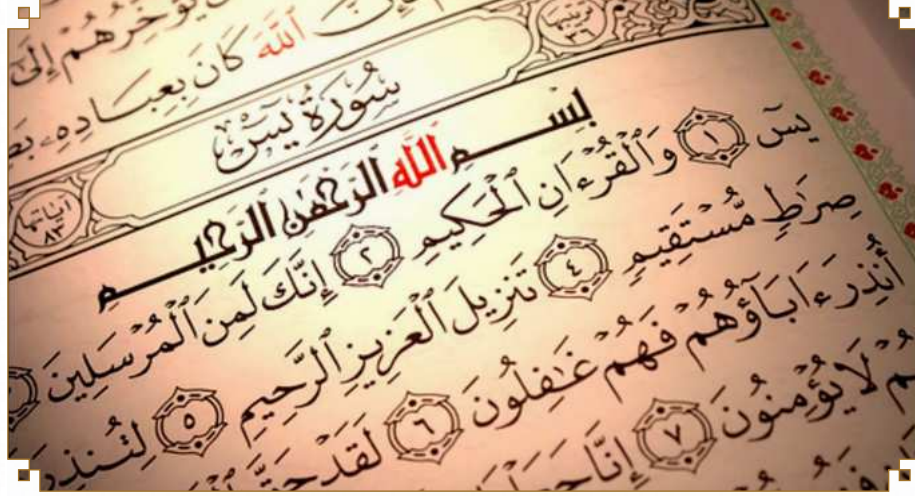 يُؤَخِّرُهُمْ إِلَىٰ
ٱللَّهَ كَانَ بِعِبَادِهِۦ
ترتيبها ٣٦
سُورَةُ يسٓ
آياتها ٨٣
بِسْمِ ٱللَّهِ ٱلرَّحْمَٰنِ ٱلرَّحِيمِ
يسٓ ١ وَٱلْقُرْءَانِ ٱلْحَكِيمِ ٢ إِنَّكَ لَمِنَ ٱلْمُرْسَلِينَ
صِرَٰطٍ مُّسْتَقِيمٍ ٤ تَنزِيلَ ٱلْعَزِيزِ ٱلرَّحِيمِ ٥ لِتُنذِرَ
أُنذِرَ ءَابَآؤُهُمْ فَهُمْ غَٰفِلُونَ ٦ لَقَدْ حَقَّ
لَا يُؤْمِنُونَ ٧ إِنَّا جَعَلْنَا